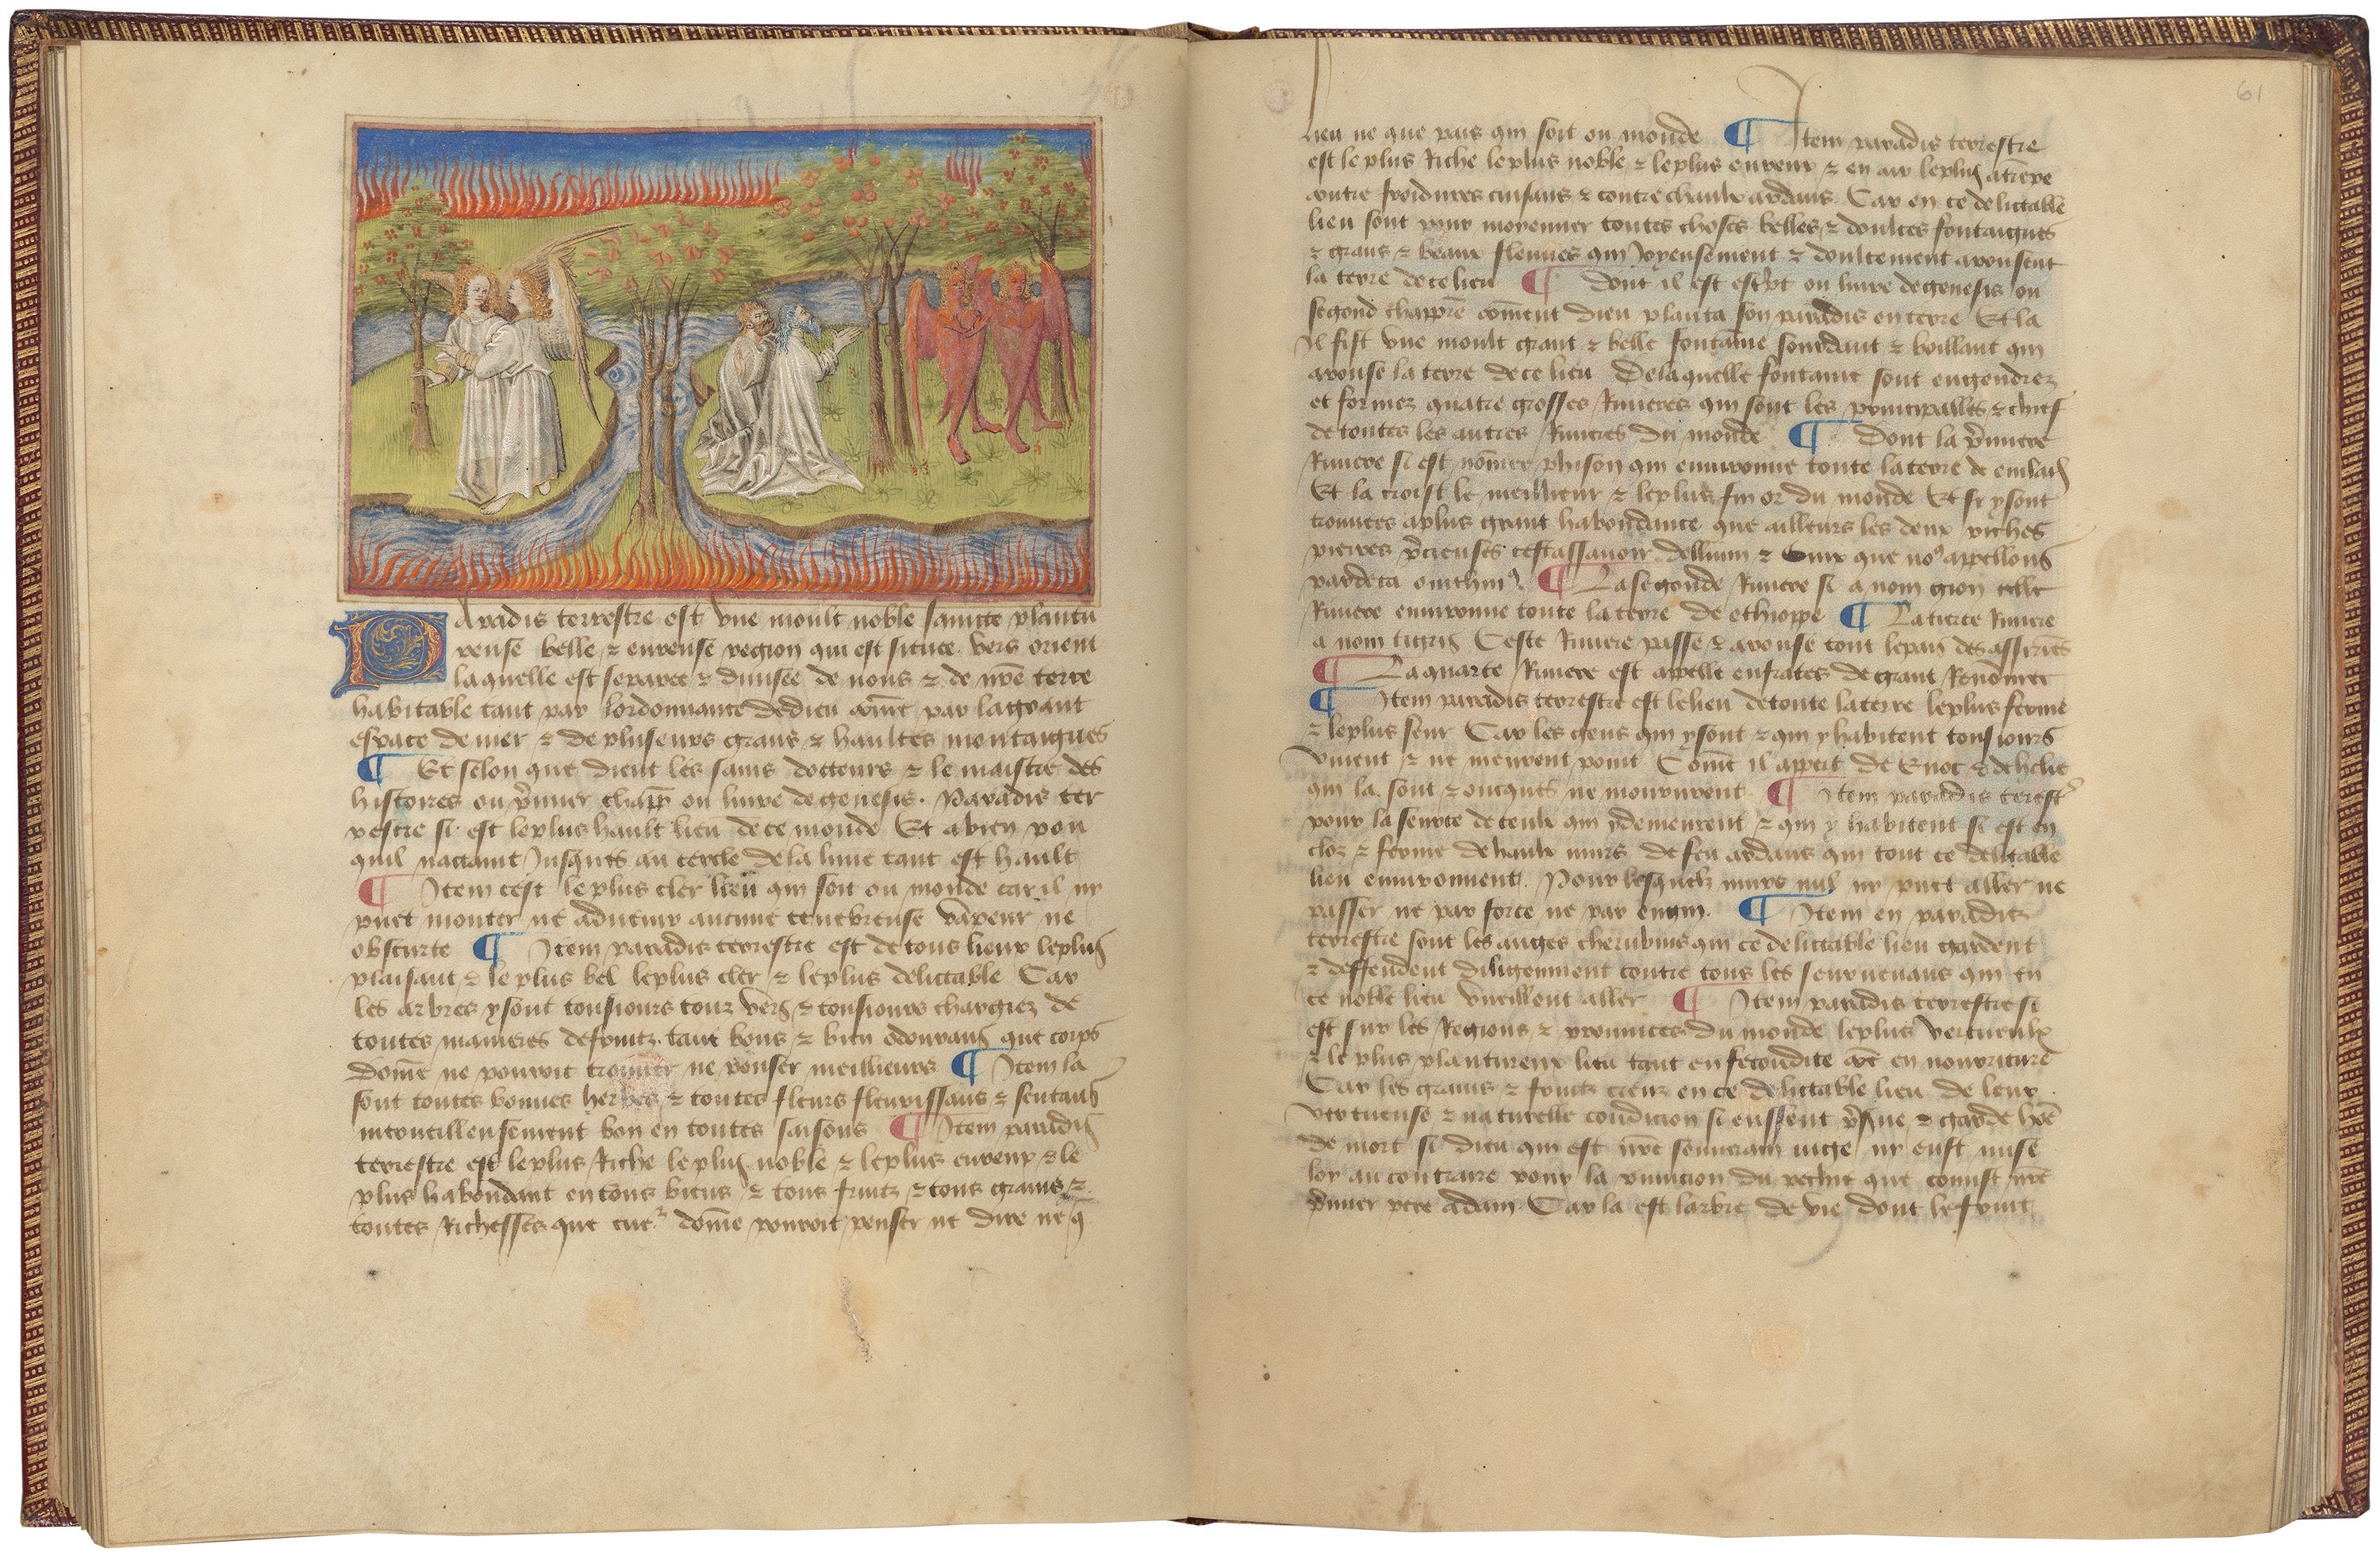 Paradis terrestre est vne moult noble saincte plantu
reuse belle ⁊ eureuse region qui est situee vers orient
laquelle est separee ⁊ diuisee de nous ⁊ de nr̄e terre
habitable tant par lordonnance de dieu cōme par la grant
espace de mer ⁊ de pluseurs grans ⁊ haultes montaignes
¶ Et selon que dient les sains docteurs ⁊ le maistre des
histores ou p̄mier chapp̄ ou liure de genesis. Paradis ter
restre si est le plus hault lieu de ce monde Et a bien pou
quil nactaint Jusques au cercle de la lune tant est hault
¶ Item cest le plus cler lieu qui soit ou monde car il ny
puet monter ne aduenir aucune tenebreuse vapeur ne
obscurte ¶ Item paradis terrestre est de tous lieux le plus
plaisant ⁊ le plus bel le plus cler ⁊ le plus delictable Car
les arbres y sont tousiours tous vers ⁊ tousiours chargiez de
toutes manieres de fruitz tant bons ⁊ bien odourans que corps
dōme ne pourroit trouuer ne penser meilleurs ¶ Item la
sont toutes bonnes herbes ⁊ toutes fleurs fleurissans ⁊ sentans
merueilleusement bon en toutes saisons ¶ Item paradis
terrestre est le plus Riche le plus noble ⁊ le plus eureux ⁊ le
plus habondant en tous biens ⁊ tous fruitz ⁊ tous grains ⁊
toutes Richesses que cuer dōme pourroit penser ne dire ne q̄
61
lieu ne que pais qui soit ou monde ¶ Item paradis terrestre
est le plus Riche le plus noble ⁊ le plus eureux ⁊ en air le plus
contre froidures cuisans ⁊ contre chaulx ardans. Car en ce delictable
lieu sont pour moyenner toutes choses belles ⁊ doulces fontaignes
⁊ grans ⁊ beaux fleuues qui Joyeusement ⁊ doulcement arousent
la terre de ce lieu ¶ Dont il est escr̄pt ou liure de genesis ou
segond chappr̄e cōment dieu planta son paradis en terre Et la
Il fist vne moult grant ⁊ belle fontaine sourdant ⁊ boillant qui
arouse la terre de ce lieu De laquelle fontaine sont engendrez
et formez quatre grosses Riuieres qui sont les principalles ⁊ chief
de toutes les autres Riuieres du monde ¶ Dont la p̄miere
Riuiere si est nōmee phison qui enuironne toute la terre de
Et la croist le meilleur ⁊ le plus fin or du monde Et si y sont
trouuees a plus grant habondance que ailleurs les deux riches
pierres p̄cieuses cestassauoir dellium ⁊ que noꝰ appellons
par deca ¶ La segonde Riuiere si a nom gion celle
Riuiere enuironne toute la terre de ethioppe ¶ La tierce Riuiere
a nom tigris Ceste Riuiere passe ⁊ arouse tout le pais des
¶ La quarte Riuiere est appelle eufrates de grant Renōmee
¶ Item paradis terrestre est le lieu de toute la terre le plus ferme
⁊ le plus seur Car les gens qui y sont ⁊ qui y habitent tousiours
viuent ⁊ ne meurent point Cōme il appert de Enoc ⁊ de helie
qui la sont ⁊ oncques ne mourirent ¶ Item paradis terestr̄
pour la seurte de ceulx qui y demeurent ⁊ qui y habitent si est en
cloz ⁊ ferme de haulx murs de feu ardans qui tout ce delictable
lieu enuironnent. Pour lesquelz murs nul ny puet aller ne
passer ne par force ne par engin. ¶ Item en paradiz
terrestre sont les anges cherubins qui ce delictable lieu gardent
⁊ deffendent diligemment contre tous les seuruenans qui en
ce noble lieu vueillent aller ¶ Item paradis terrestre si
est sur les Regions ⁊ prouinces du monde le plus vertueulx
⁊ le plus plantureux lieu tant en fecondite cōe en nourriture
Car les grains ⁊ fruitz creuz en ce delictable lieu de leur
vertueuse ⁊ naturelle condicion si eussent ⁊ garde
de mort si dieu qui est nr̄e souuerain iuge ny eust mise
loy au contraire pour la punicion du pechie que cōmist nr̄e
p̄mier pere adam. Car la est larbre de vie dont le fruit